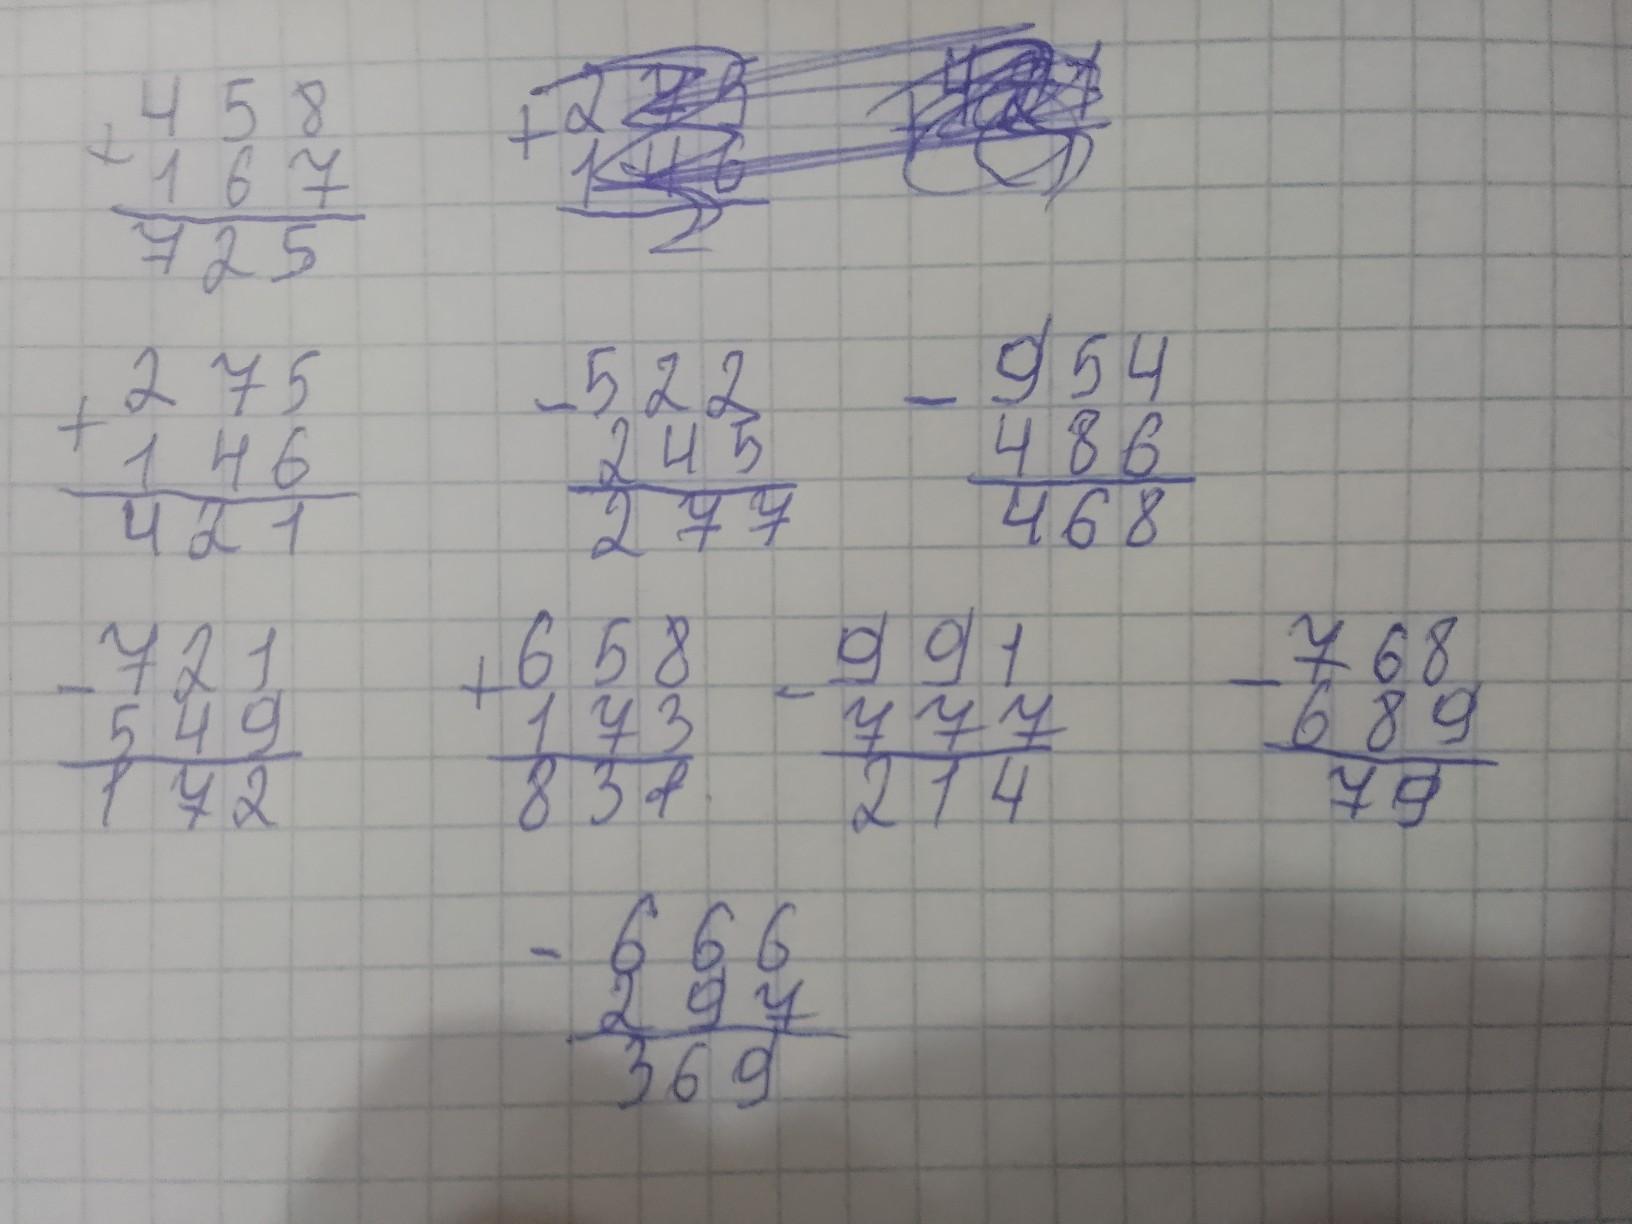 458
+
167
725
+ 275
146
2
275
+
146
421
- 522
245
277
- 954
486
468
- 721
549
172
+ 658
173
831
- 991
777
214
- 768
689
79
- 666
297
369